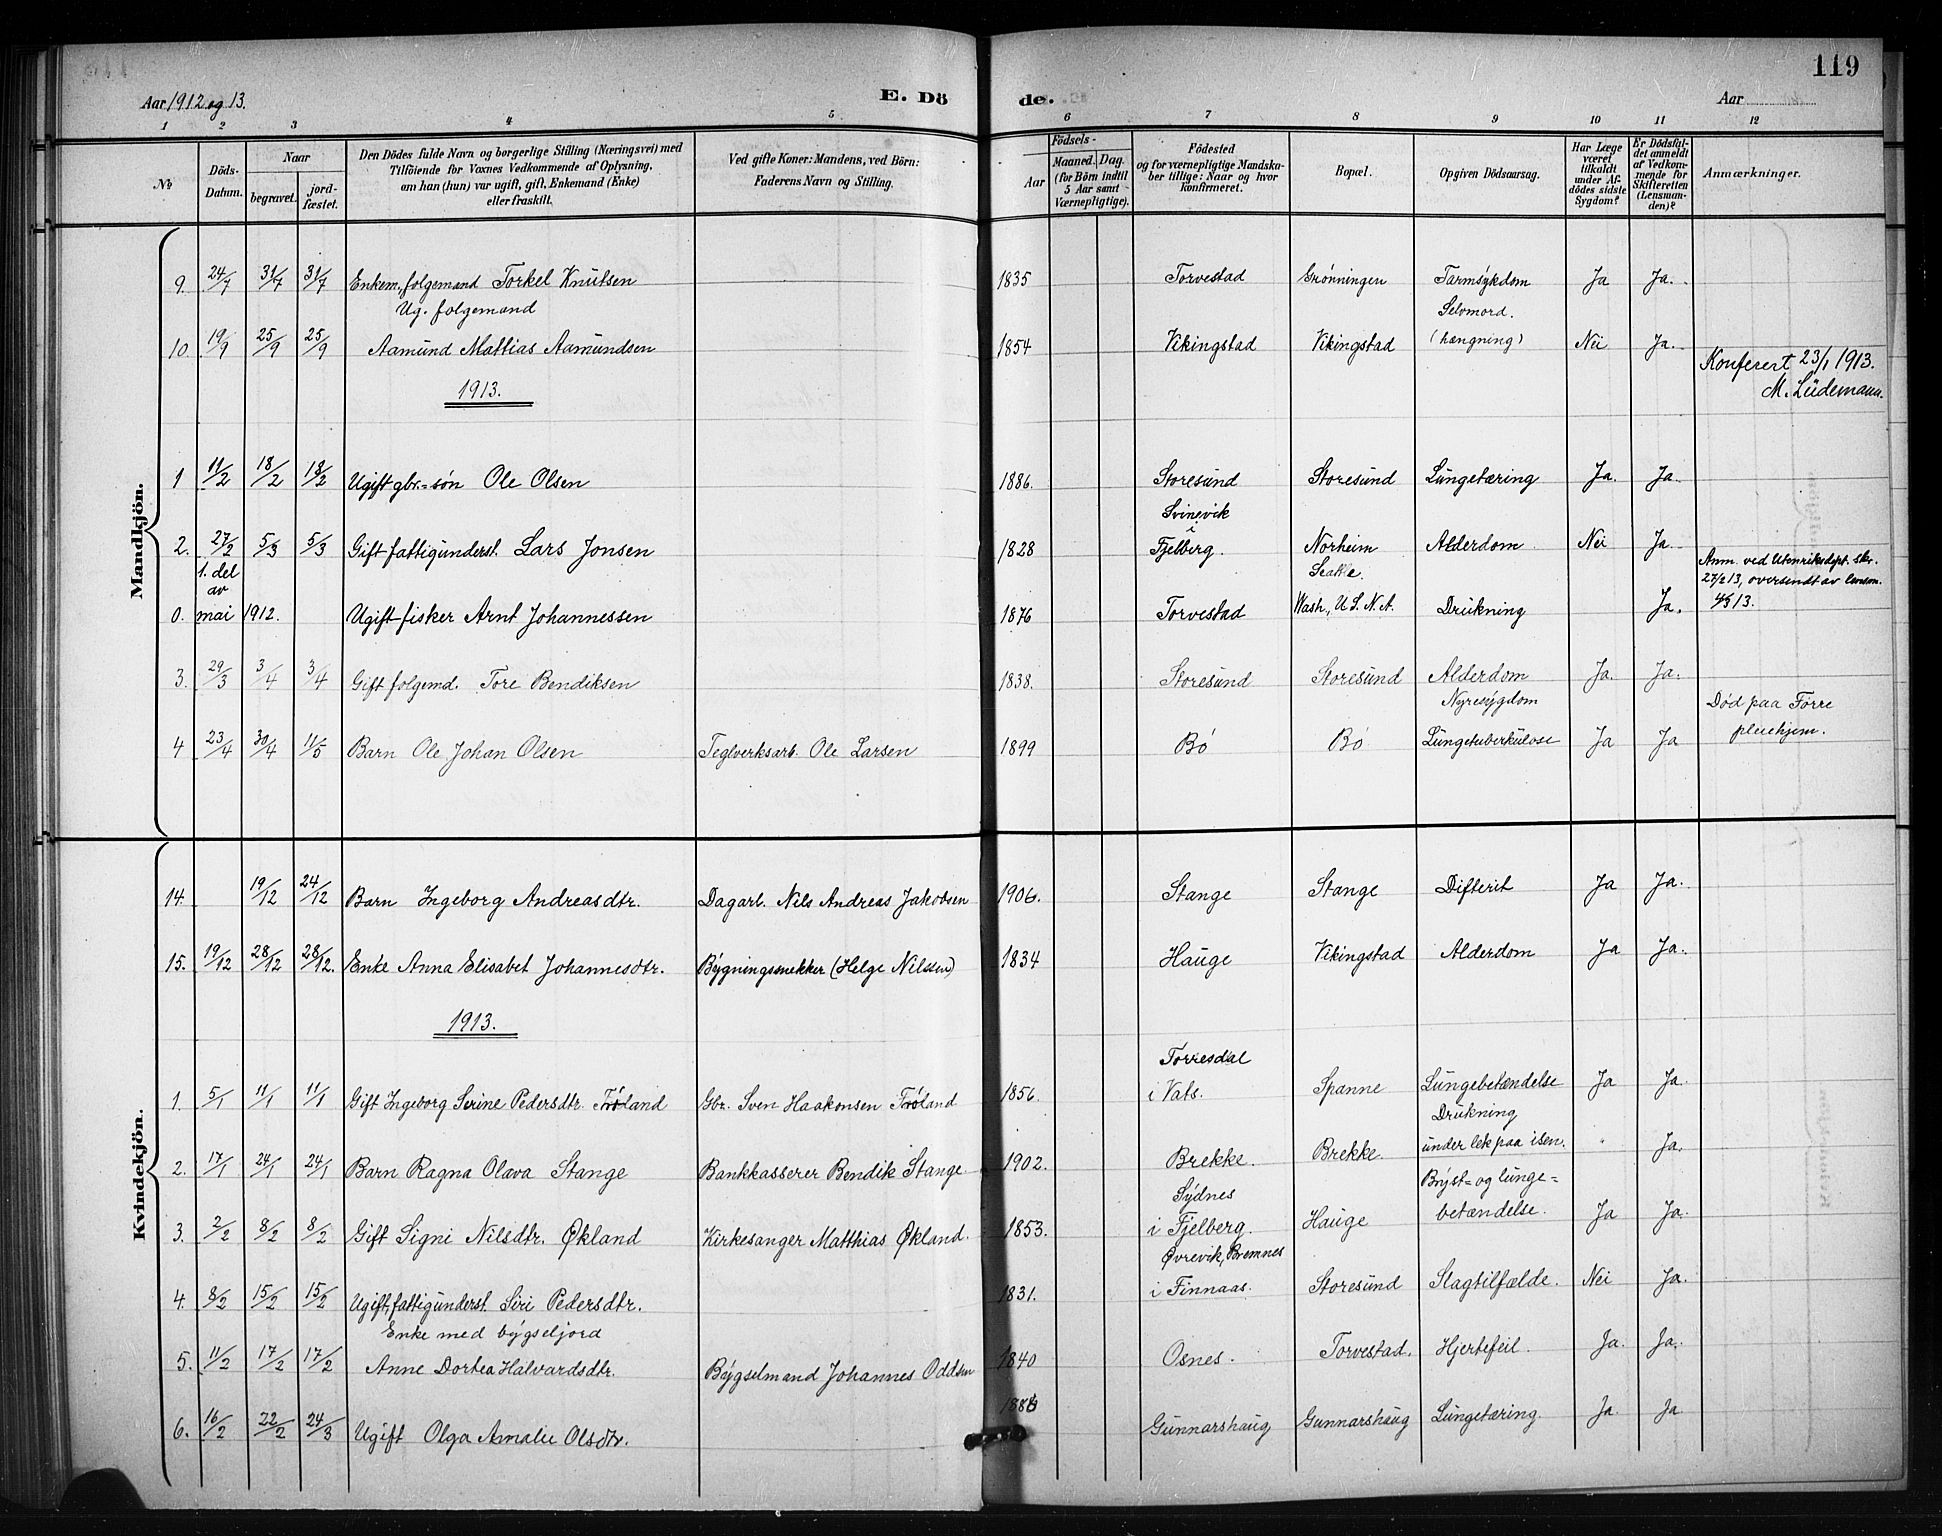 119
Aar 1912 og 13.
E. Dö
de.
Aar
1 2 3 4 5 6 7 8 9 10 11 12
No
Döds-Datum.
Naar
begravet.
jord-fæstet.
Den Dödes fulde Navn og borgerlige Stilling (Næringsvei) med
Tilföiende for Voxnes Vedkommende af Oplysning,
om han (hun) var ugift, gift, Enkemand (Enke)
eller fraskilt.
Ved gifte Koner: Mandens, ved Börn:
Faderens Navn og Stilling.
Födsels-
Aar
Maaned. Dag.
(for Börn indtil
5 Aar samt
Værnepligtige).
Födested
og for værnepligtige Mandska-
ber tillige: Naar og hvor
konfirmeret.
Bopæl.
Opgiven Dödsaarsag.
Har Læge
været
tilkaldt
under Af-
dödes sidste
Sygdom?
Er Dödsfal-
det anmeldt
af Vedkom-
mende for
Skifteretten
(Lensman-
den)?
Anmærkninger.
Mandkjön.
9. 24/7 31/7 31/7 Enkem., folgemand Torkel Knutsen 1835 Torvestad Grönningen Tarmsykdom Ja Ja.
Ug. folgemand Selvmord.
10 19/9 25/9 25/9 Aamund Mattias Aamundsen 1854 Vikingstad Vikingstad (hængning) Nei Ja.
Konferert 23/1 1913.
M. Lüdemann.
1913.
1 11/2 18/2 18/2 Ugift gbr.=sön Ole Olsen 1886. Storesund Storesund Lungetæring Ja. Ja.
Svinevik
i
2. 27/2 5/3 5/3 Gift fattigunderst. Lars Jonsen 1828 Fjelberg. Norheim Alderdom Nei Ja.
1. del
av
Seattle.
Anm. ved Utenriksdept. skr.
27/2 13, oversendt av lensm.
4/3 13.
0. mai 1912. Ugift fisker Arnt Johannessen 1876 Torvestad Wash., U.S.N.A. Drukning Ja.
3. 29/3 3/4 3/4 Gift folgemd. Tore Bendiksen 1838. Storesund Storesund Alderdom Ja. Ja.
Nyresygdom
Död paa Förre
pleiehjem.
4 23/4 30/4 11/5 Barn Ole Johan Olsen Teglverksarb. Ole Larsen 1899 Bö Bö Lungetuberkulose Ja Ja
Kvindekjön.
14. 19/12 24/12 Barn Ingeborg Andreasdtr. Dagarb. Nils Andreas Jakobsen 1906. Stange Stange Difterit Ja Ja.
15. 19/12 28/12 28/12. Enke Anna Elisabet Johannesdtr. Bygningssnekker (Helge Nilssen) 1834 Hauge Vikingstad Alderdom Ja Ja.
1913.
Torresdal
1. 5/1 11/1 11/1 Gift Ingeborg Serine Pedersdtr. Fröland Gbr. Sven Haakonsen Fröland 1856. i Vats. Spanne Lungebetændelse Ja Ja.
Drukning
2. 17/1 24/1 24/1 Barn Ragna Olava Stange Bankkasserer Bendik Stange 1902. Brekke. Brekke. under lek paa isen. " Ja.
Sydnes Bryst= og lunge=
3. 2/2 8/2 8/2 Gift Signi Nilsdtr. Økland Kirkesanger Matthias Økland. 1853. i Fjelberg. Hauge betændelse. Ja Ja.
Øvrevik, Bremnes
4. 8/2 15/2 15/2 Ugift, fattigunderst. Siri Pedersdtr. 1831. i Finnaas. Storesund Slagtilfælde. Nei Ja.
Enke med bygseljord
5. 11/2 17/2 17/2 Anne Dortea Halvardsdtr. Bygselmand Johannes Oddsen 1840 Osnes. Torvestad. Hjertefeil. Ja. Ja.
6. 16/2 22/2 24/3 Ugift Olga Amalie Olsdtr. Gunnarshaug Gunnarshaug Lungetæring. Ja. Ja